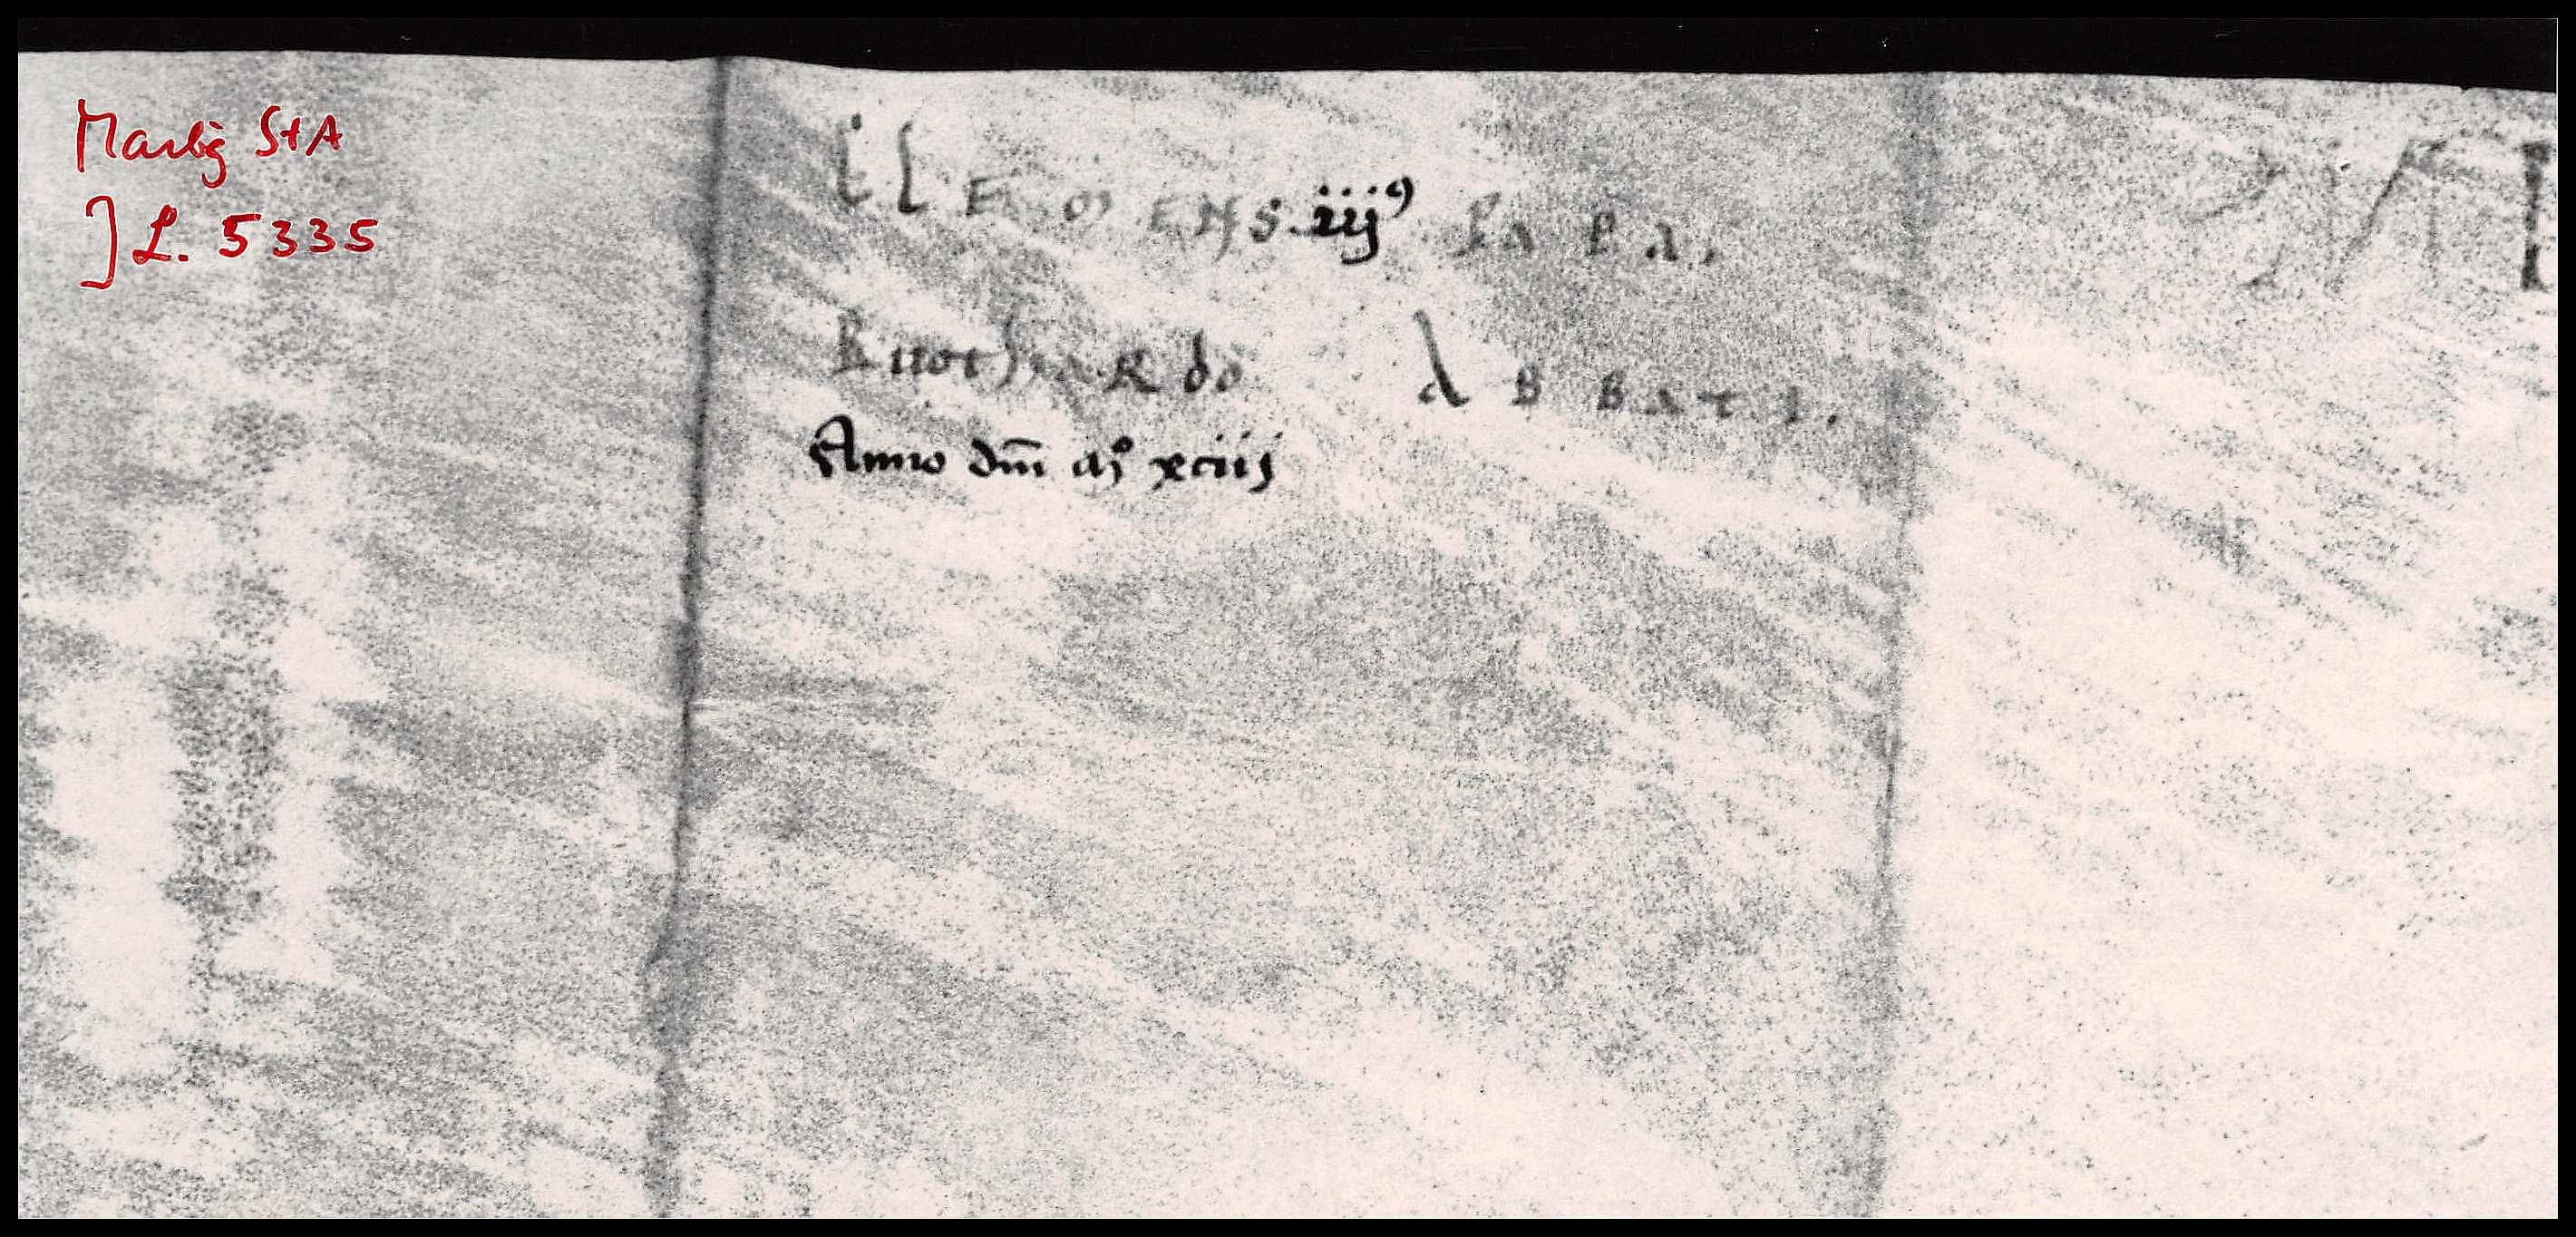 Marbg StA
JL. 5335
CLEMENS.iijꝰ PaPa.
RuothaRdo ABBaTI.
Anno dm̄ mº xciij